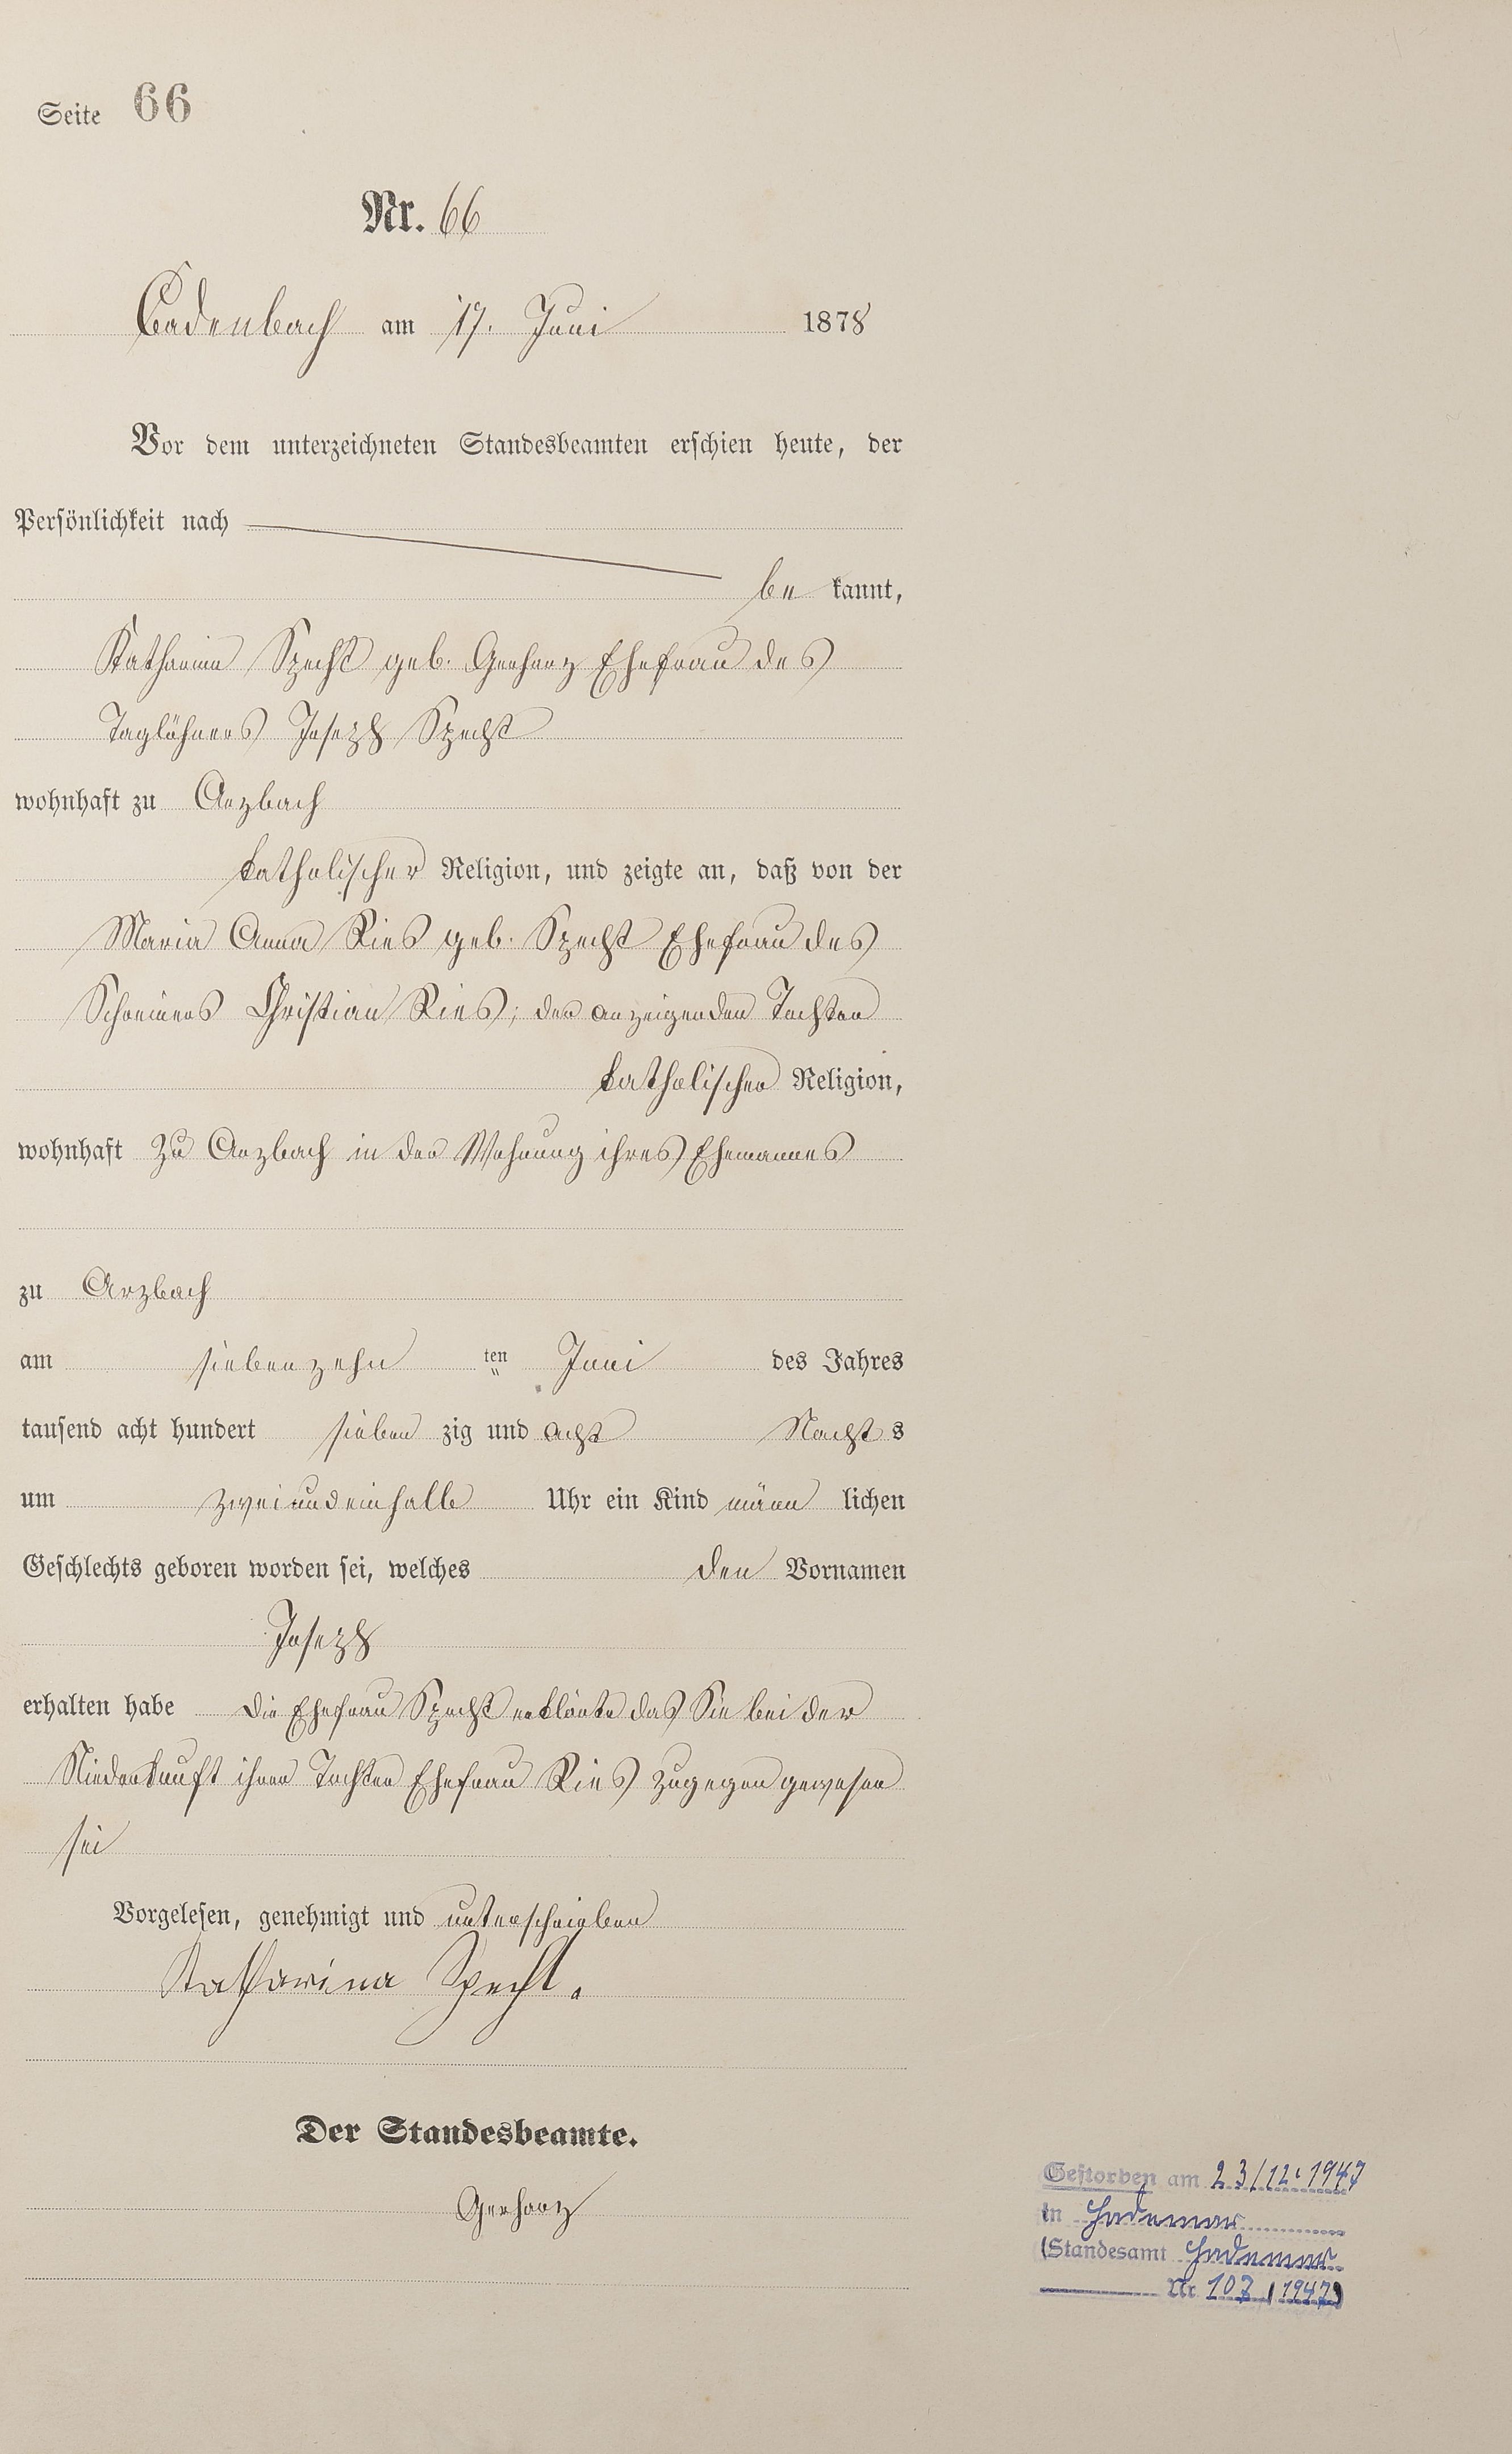 Seite 66
Nr. 66
Cadenbach am 17. Juni 1878
Vor dem unterzeichneten Standesbeamten erschien heute, der
Persönlichkeit nach
be kannt,
Katharina Specht geb. Gerharz Ehefrau des
Taglöhners Joseph Specht
wohnhaft zu Arzbach
katholischer Religion, und zeigte an, daß von der
Maria Anna Ries geb. Specht Ehefrau des
Schreiners Christian Ries, der anzeigenden Tochter
katholischer Religion,
wohnhaft zu Arzbach in der Wohnung ihres Ehemannes
zu Arzbach
am siebenzehn ten Juni des Jahres
tausend acht hundert sieben zig und acht Nacht s
um zweiundeinhalb Uhr ein Kind männ lichen
Geschlechts geboren worden sei, welches den Vornamen
Joseph
erhalten habe die Ehefrau Specht erklärte das Sie bei der
Niederkunft ihrer Tochter Ehefrau Ries zugegen gewesen
sei
Vorgelesen, genehmigt und unterschrieben
Katharina Specht.
Der Standesbeamte.
Gerharz
Gestorben am 23/12.1947
in Hadamar
(Standesamt Hadamar
Nr. 107/1947)